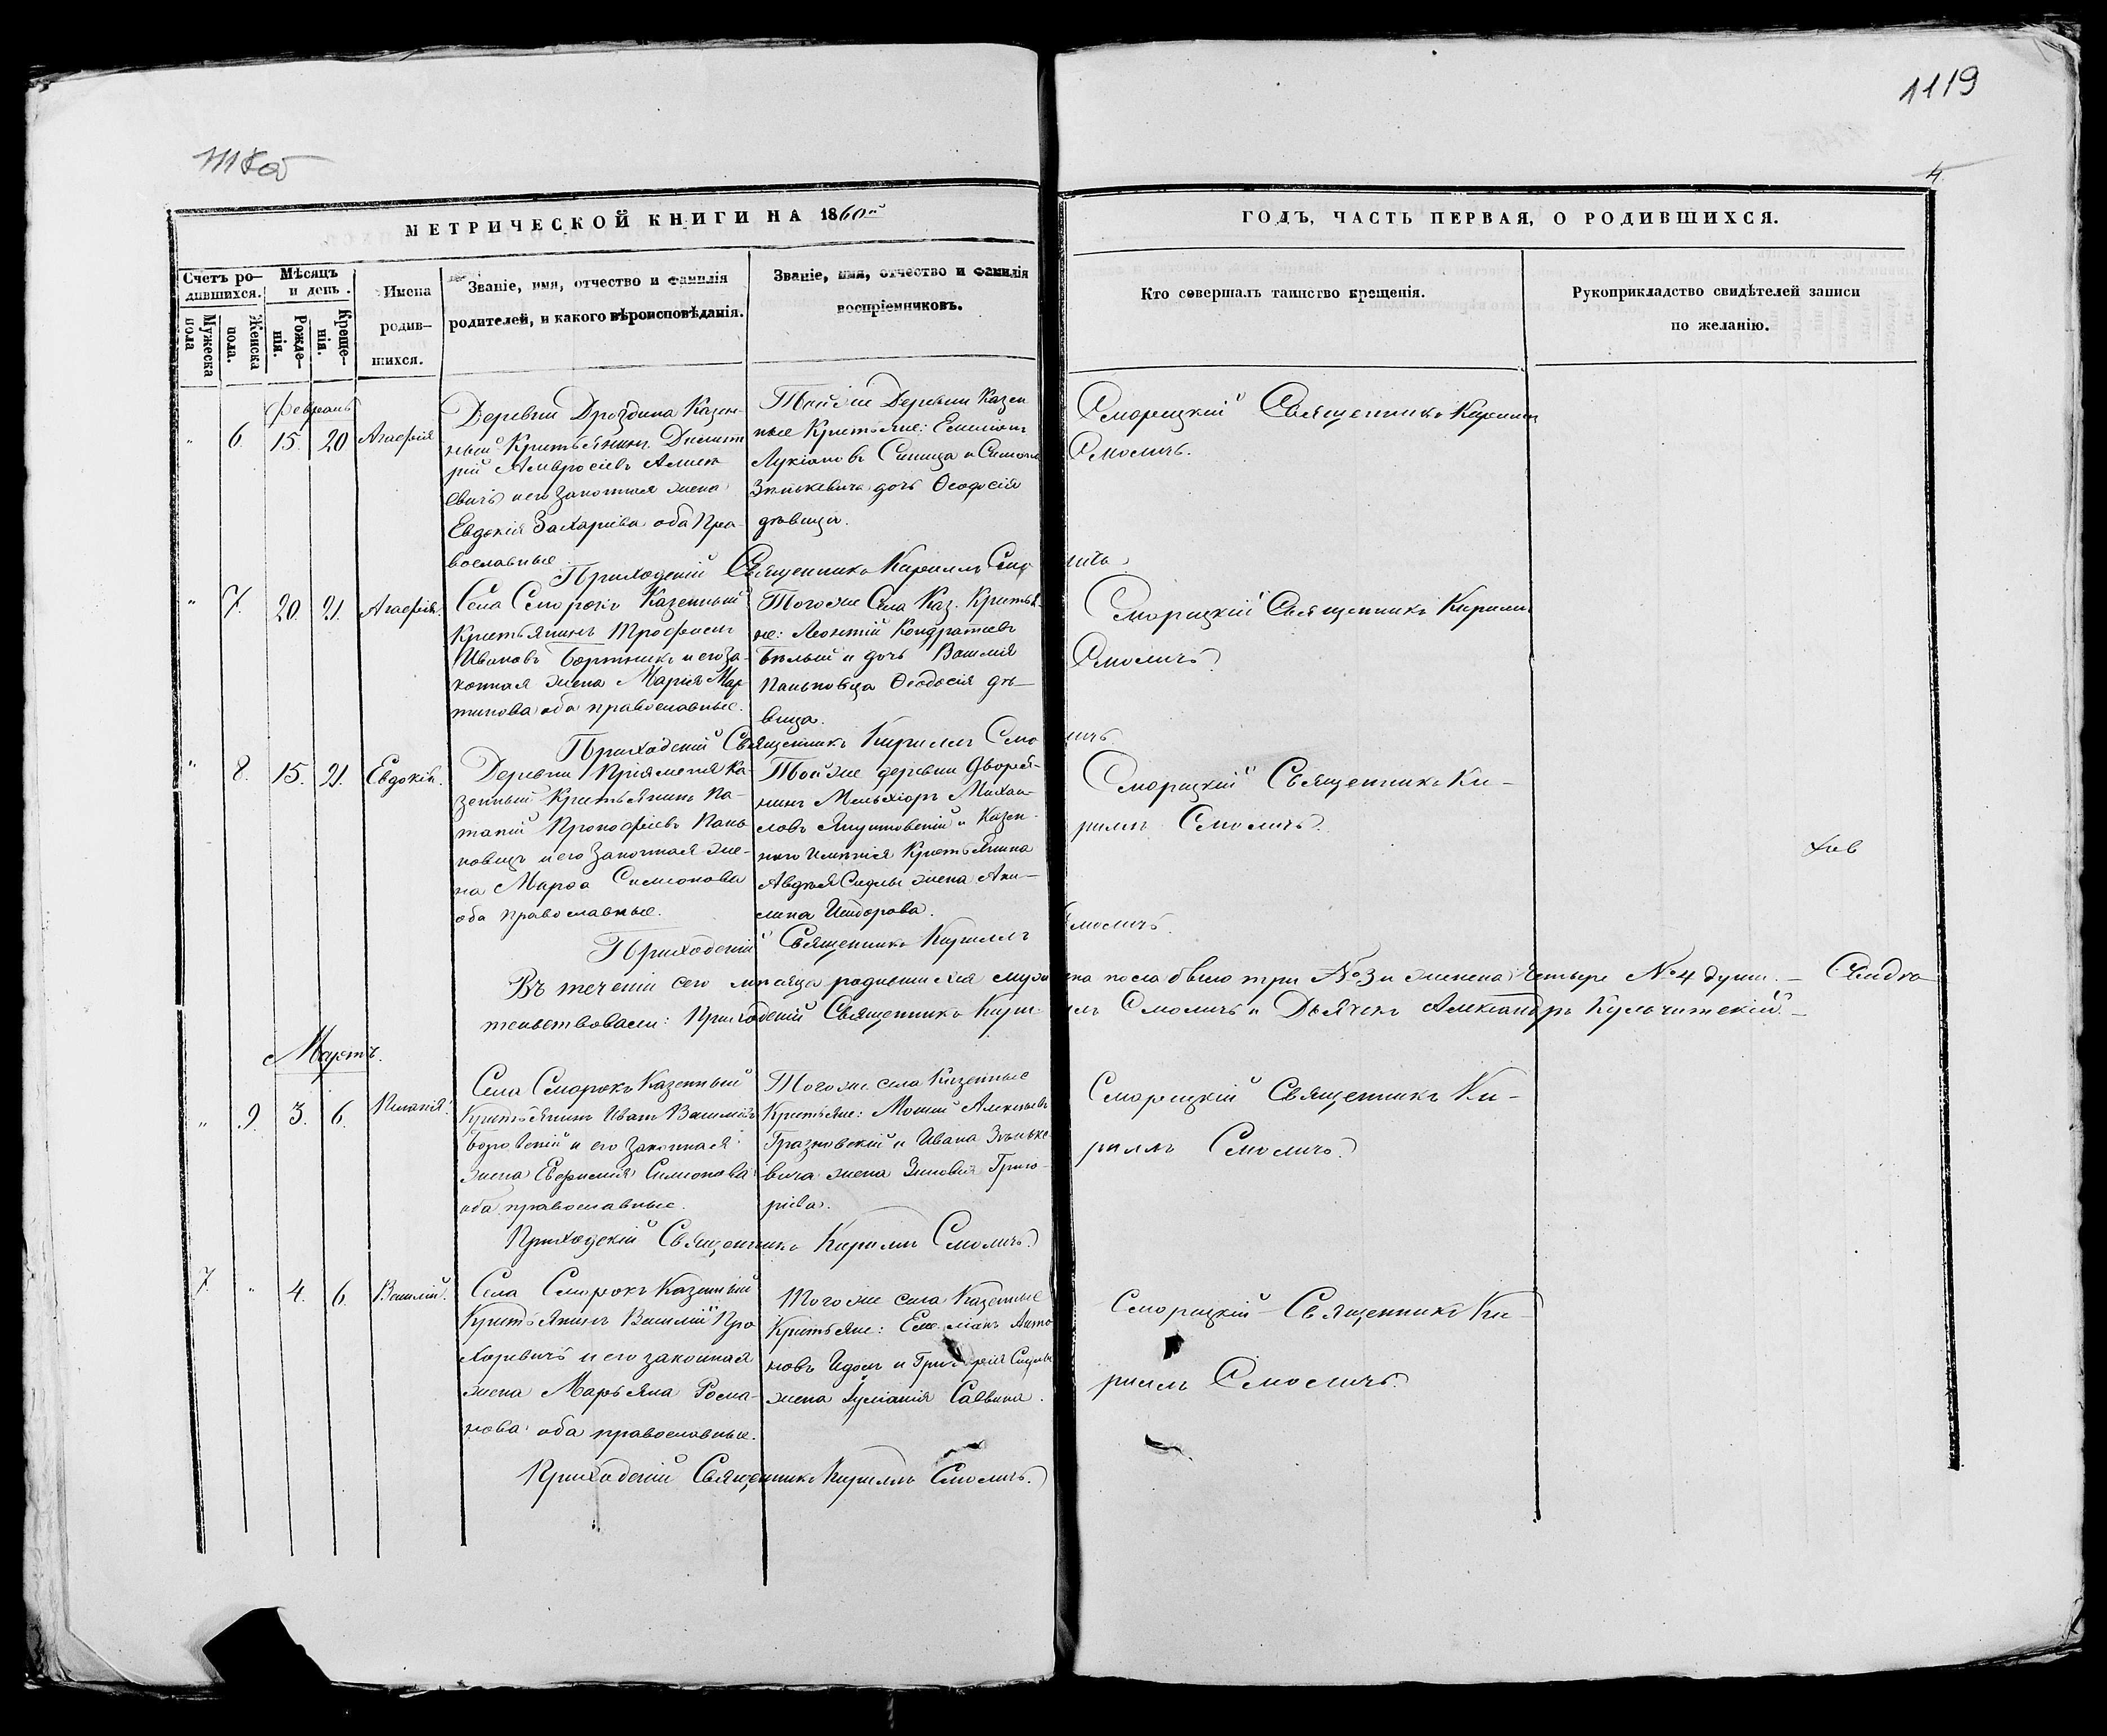 1119
4.
МЕТРИЧЕСКОЙ КНИГИ НА 1860й
ГОДЪ, ЧАСТЬ ПЕРВАЯ, О РОДИВШИХСЯ.
Счетъ ро-
дившихся.
Мужеска
пола
Женска
пола.
Мѣсяцъ
и день.
Рожде-
нія.
Креще-
нія.
Имена
родив-
шихся.
Званіе, имя, отчество и фамилія
родителей, и какого вѣроисповѣданія.
Званіе, имя, отчество и фамилія
воспріемниковъ.
Кто совершалъ таинство крещенія.
Рукоприкладство свидѣтелей записи
по желанію.
Февраль
" 6. 15. 20 Агафія
Деревни Дроздина Казен-
ный Крестьянинъ Димит
рій Амвросіевъ
и его Законная жена
Евдокія Захаріева оба Пра-
вославные.
Тойже Деревни Казен
ные Крестьяне: Емиліанъ
Лукіановъ Синица и Симона
Зенькевича дочь Ѳеодосія
дѣвица.
Сморицкій Священникъ Кириллъ
Смоличъ.
Приходскій Священникъ Кириллъ Смоличъ.
" 7. 20. 21. Агафія.
Села Сморокъ Казенный
Крестьянинъ Трофимъ
Ивановъ Бортникъ и его за-
конная жена Марія Мар
тинова оба православные.
Тогоже Села Каз. Крестья-
не: Леонтій Кондратіевъ
Бѣлый и дочь Василія
Паньковца Ѳеодосія дѣ-
вица.
Сморицкій Священникъ Кириллъ
Смоличъ.
Приходскій Священникъ Кириллъ Смоличъ
" 8. 15. 21. Евдокія.
Деревни Ка-
зенный Крестьянинъ По-
тапій Прокофіевъ Пань
ковецъ и его Законная же-
на Марѳа Симеонова
оба православные.
Тойже деревни Дворя-
нинъ Мельхіоръ Михаи-
ловъ и Казен-
наго Имѣнія Крестьянина
Авдѣя Сидлы жена Аки-
лина Исидорова.
Сморицкій Священникъ Ки-
риллъ Смоличъ.
Приходскій Священникъ Кириллъ Смоличъ.
Въ теченіи сего мѣсяца родившихся мужеска пола было три №3 и женска четыре №4 души. — Свидѣ-
тельствовали: Приходскій Священникъ Кириллъ Смоличъ и Дьячекъ Александръ Кульчитскій. —
Мартъ.
" 9. 3. 6.
Села Сморокъ Казенный
Крестьянинъ Иванъ Василіевъ
Боровскій и его Законная
жена Евфимія Симеонова
оба православные.
Тогоже села Казенные
Крестьяне: Моисей Алексѣевъ
и Ивана Зенько-
вича жена Зиновія Григо-
ріева.
Сморицкій Священникъ Ки-
риллъ Смоличъ.
Приходскій Священникъ Кириллъ Смоличъ.
7 " 4. 6. Василій.
Села Сморокъ Казенный
Крестьянинъ Василій Про
хоревичъ и его законная
жена Марьяна Рома-
нова оба православные.
Тогоже села Казенные
Крестьяне: Емеліанъ Анто
новъ и Григорія Сидлы
жена Саввина.
Сморицкій Священникъ Ки-
риллъ Смоличъ.
Приходскій Священникъ Кириллъ Смоличъ.